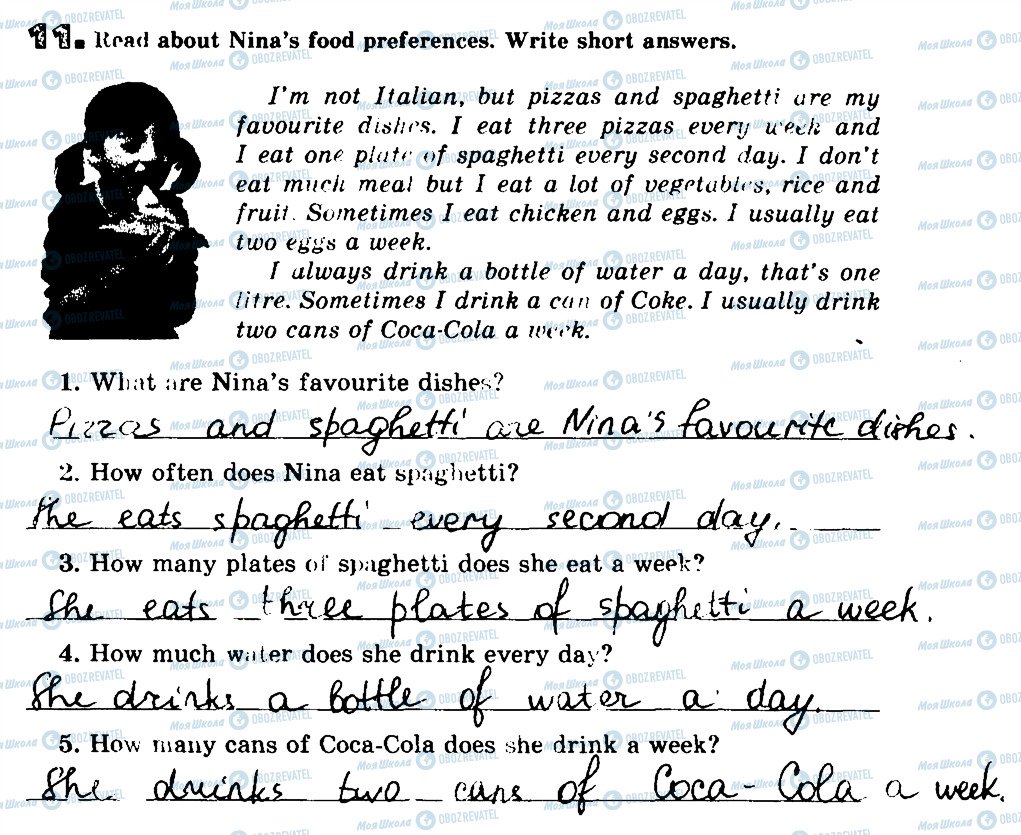 11. Read about Nina's food preferences. Write short answers.
I'm not Italian, but pizzas and spaghetti are my
favourite dishes. I eat three pizzas every week and
I eat one plate of spaghetti every second day. I don't
eat much meat but I eat a lot of vegetables, rice and
fruit. Sometimes I eat chicken and eggs. I usually eat
two eggs a week.
I always drink a bottle of water a day, that's one
litre. Sometimes I drink a can of Coke. I usually drink
two cans of Coca-Cola a week.
1. What are Nina's favourite dishes?
Pizzas and spaghetti are Nina's favourite dishes.
2. How often does Nina eat spaghetti?
She eats spaghetti every second day.
3. How many plates of spaghetti does she eat a week?
She eats three plates of spaghetti a week.
4. How much water does she drink every day?
She drinks a bottle of water a day.
5. How many cans of Coca-Cola does she drink a week?
She drinks two cans of Coca-Cola a week.
МояШкола OBOZREVATEL